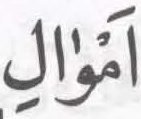 اَمْوٰالِ